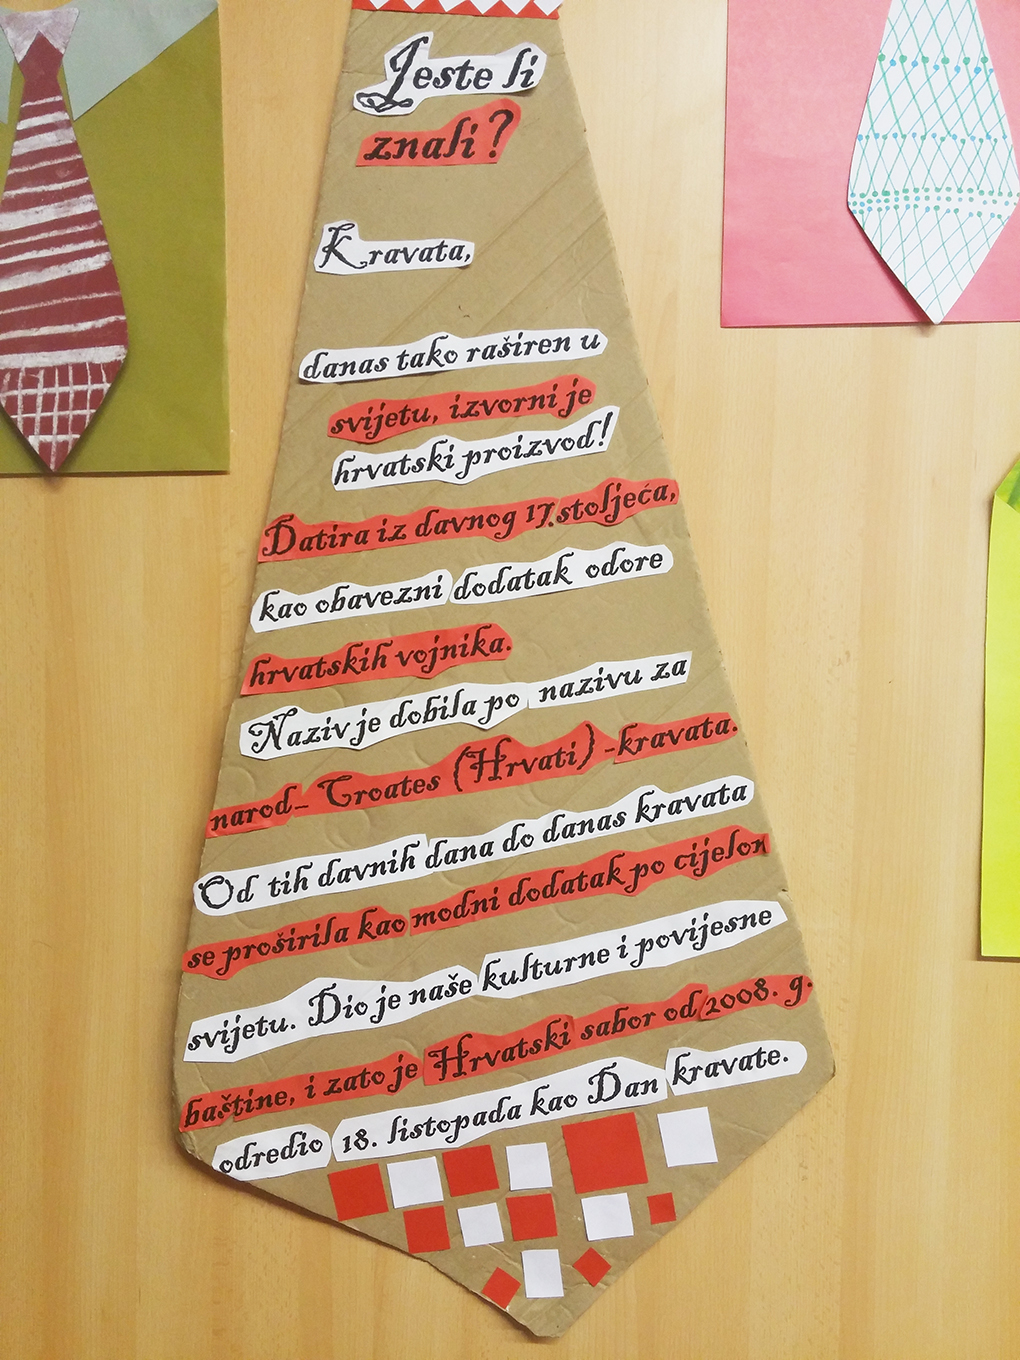 Jeste li
znali?
Kravata,
danas tako raširen u
svijetu, izvorni je
hrvatski proizvod!
Datira iz davnog 17. stoljeća,
kao obavezni dodatak odore
hrvatskih vojnika.
Naziv je dobila po nazivu za
narod- Croates (Hrvati) -kravata.
Od tih davnih dana do danas kravata
se proširila kao modni dodatak po cijelom
svijetu. Dio je naše kulturne i povijesne
baštine, i zato je Hrvatski sabor od 2008. g.
odredio 18. listopada kao Dan kravate.